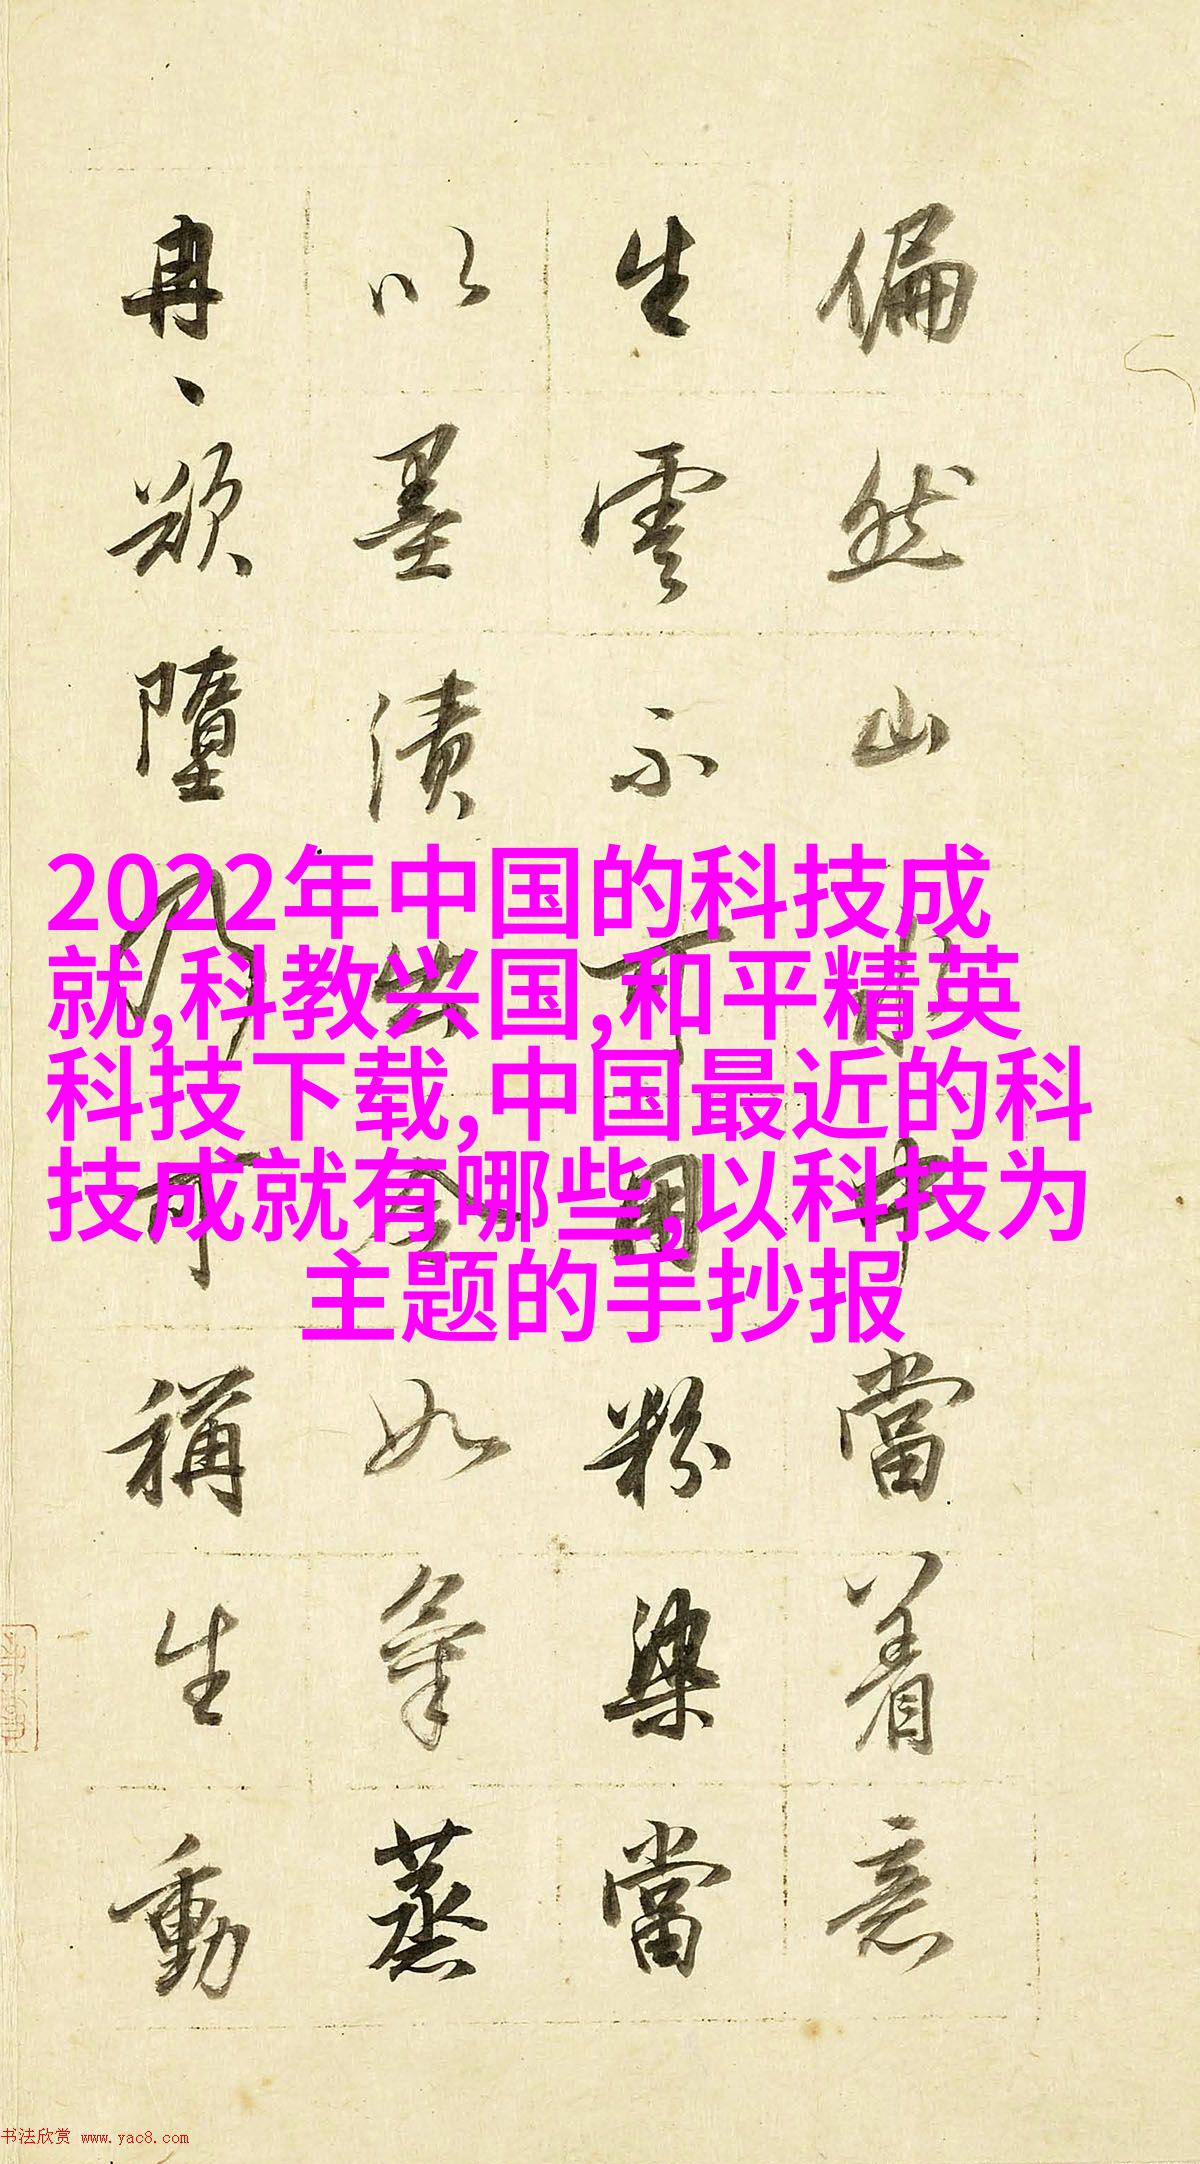 偏然山水中當着意
生雲不可用粉染當
以墨漬出令如氣蒸
冉、欲墮乃可稱生動
2022年中国的科技成
就,科教兴国,和平精英
科技下载,中国最近的科
技成就有哪些,以科技为
主题的手抄报
书法欣赏 www.yac8.com